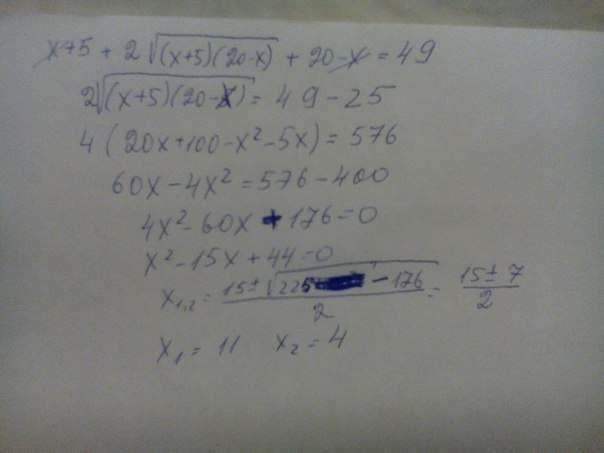 x+5 + 2√((x+5)(20-x)) + 20-x = 49
2√((x+5)(20-x)) = 49-25
4(20x+100-x²-5x) = 576
60x-4x² = 576-400
4x²-60x+176=0
x²-15x+44=0
x₁,₂ = (15±√(225-176))/2 = (15±7)/2
x₁ = 11 x₂ = 4